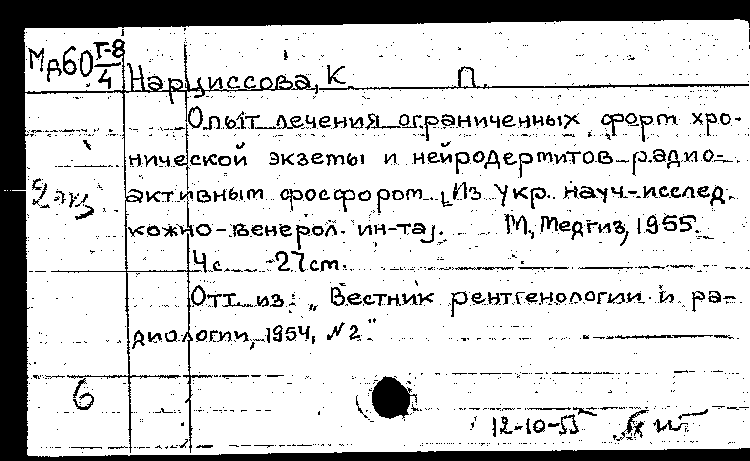 Мд60 Г-8/4
Нарциссова, К. П.
Опыт лечения ограниченных форм хро-
нической экземы и нейродермитов радио-
2 экз.
активным фосфором [Из Укр. науч-исслед.
кожно-венерол. ин-та]. М., Медгиз, 1955.
4 с. 27 см.
Отт. из: „Вестник рентгенологии и ра-
диологии, 1954, №2."
6
12-10-55